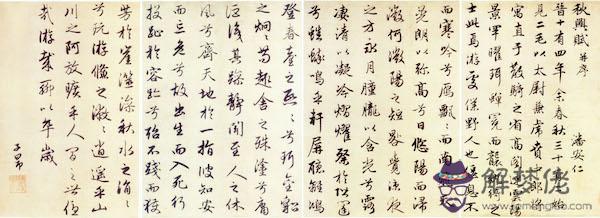 秋興賦 并序
潘安仁
晉十有四年余春秋三十有二始
見二毛以太尉兼虎賁中郎將
寓直于散騎之省高閣連雲陽
景罕曜珥蟬冕而襲紈綺之
士此焉游處僕野人也偃息不
而寒吟兮鴈飄飄而南
晃朗以彌高兮日悠陽而浸
微何微陽之短晷覺涼夜
之方永月朣朧以含光兮露
淒清以凝冷熠燿粲於階闥
兮蟋蟀鳴乎軒屏聽離鴻
登春臺之熙熙兮珥金貂
之炯炯苟趣舍之殊塗兮庸
詎識其躁靜聞至人之休
風兮齊天地於一指彼知安
而忘危兮故出生而入死行
投趾於容跡兮殆不踐而獲
芳於崖澨澡秋水之涓涓
兮玩游鯈之潎潎逍遙乎山
川之阿放曠乎人間之世優
哉游哉聊以卒歲
子昂